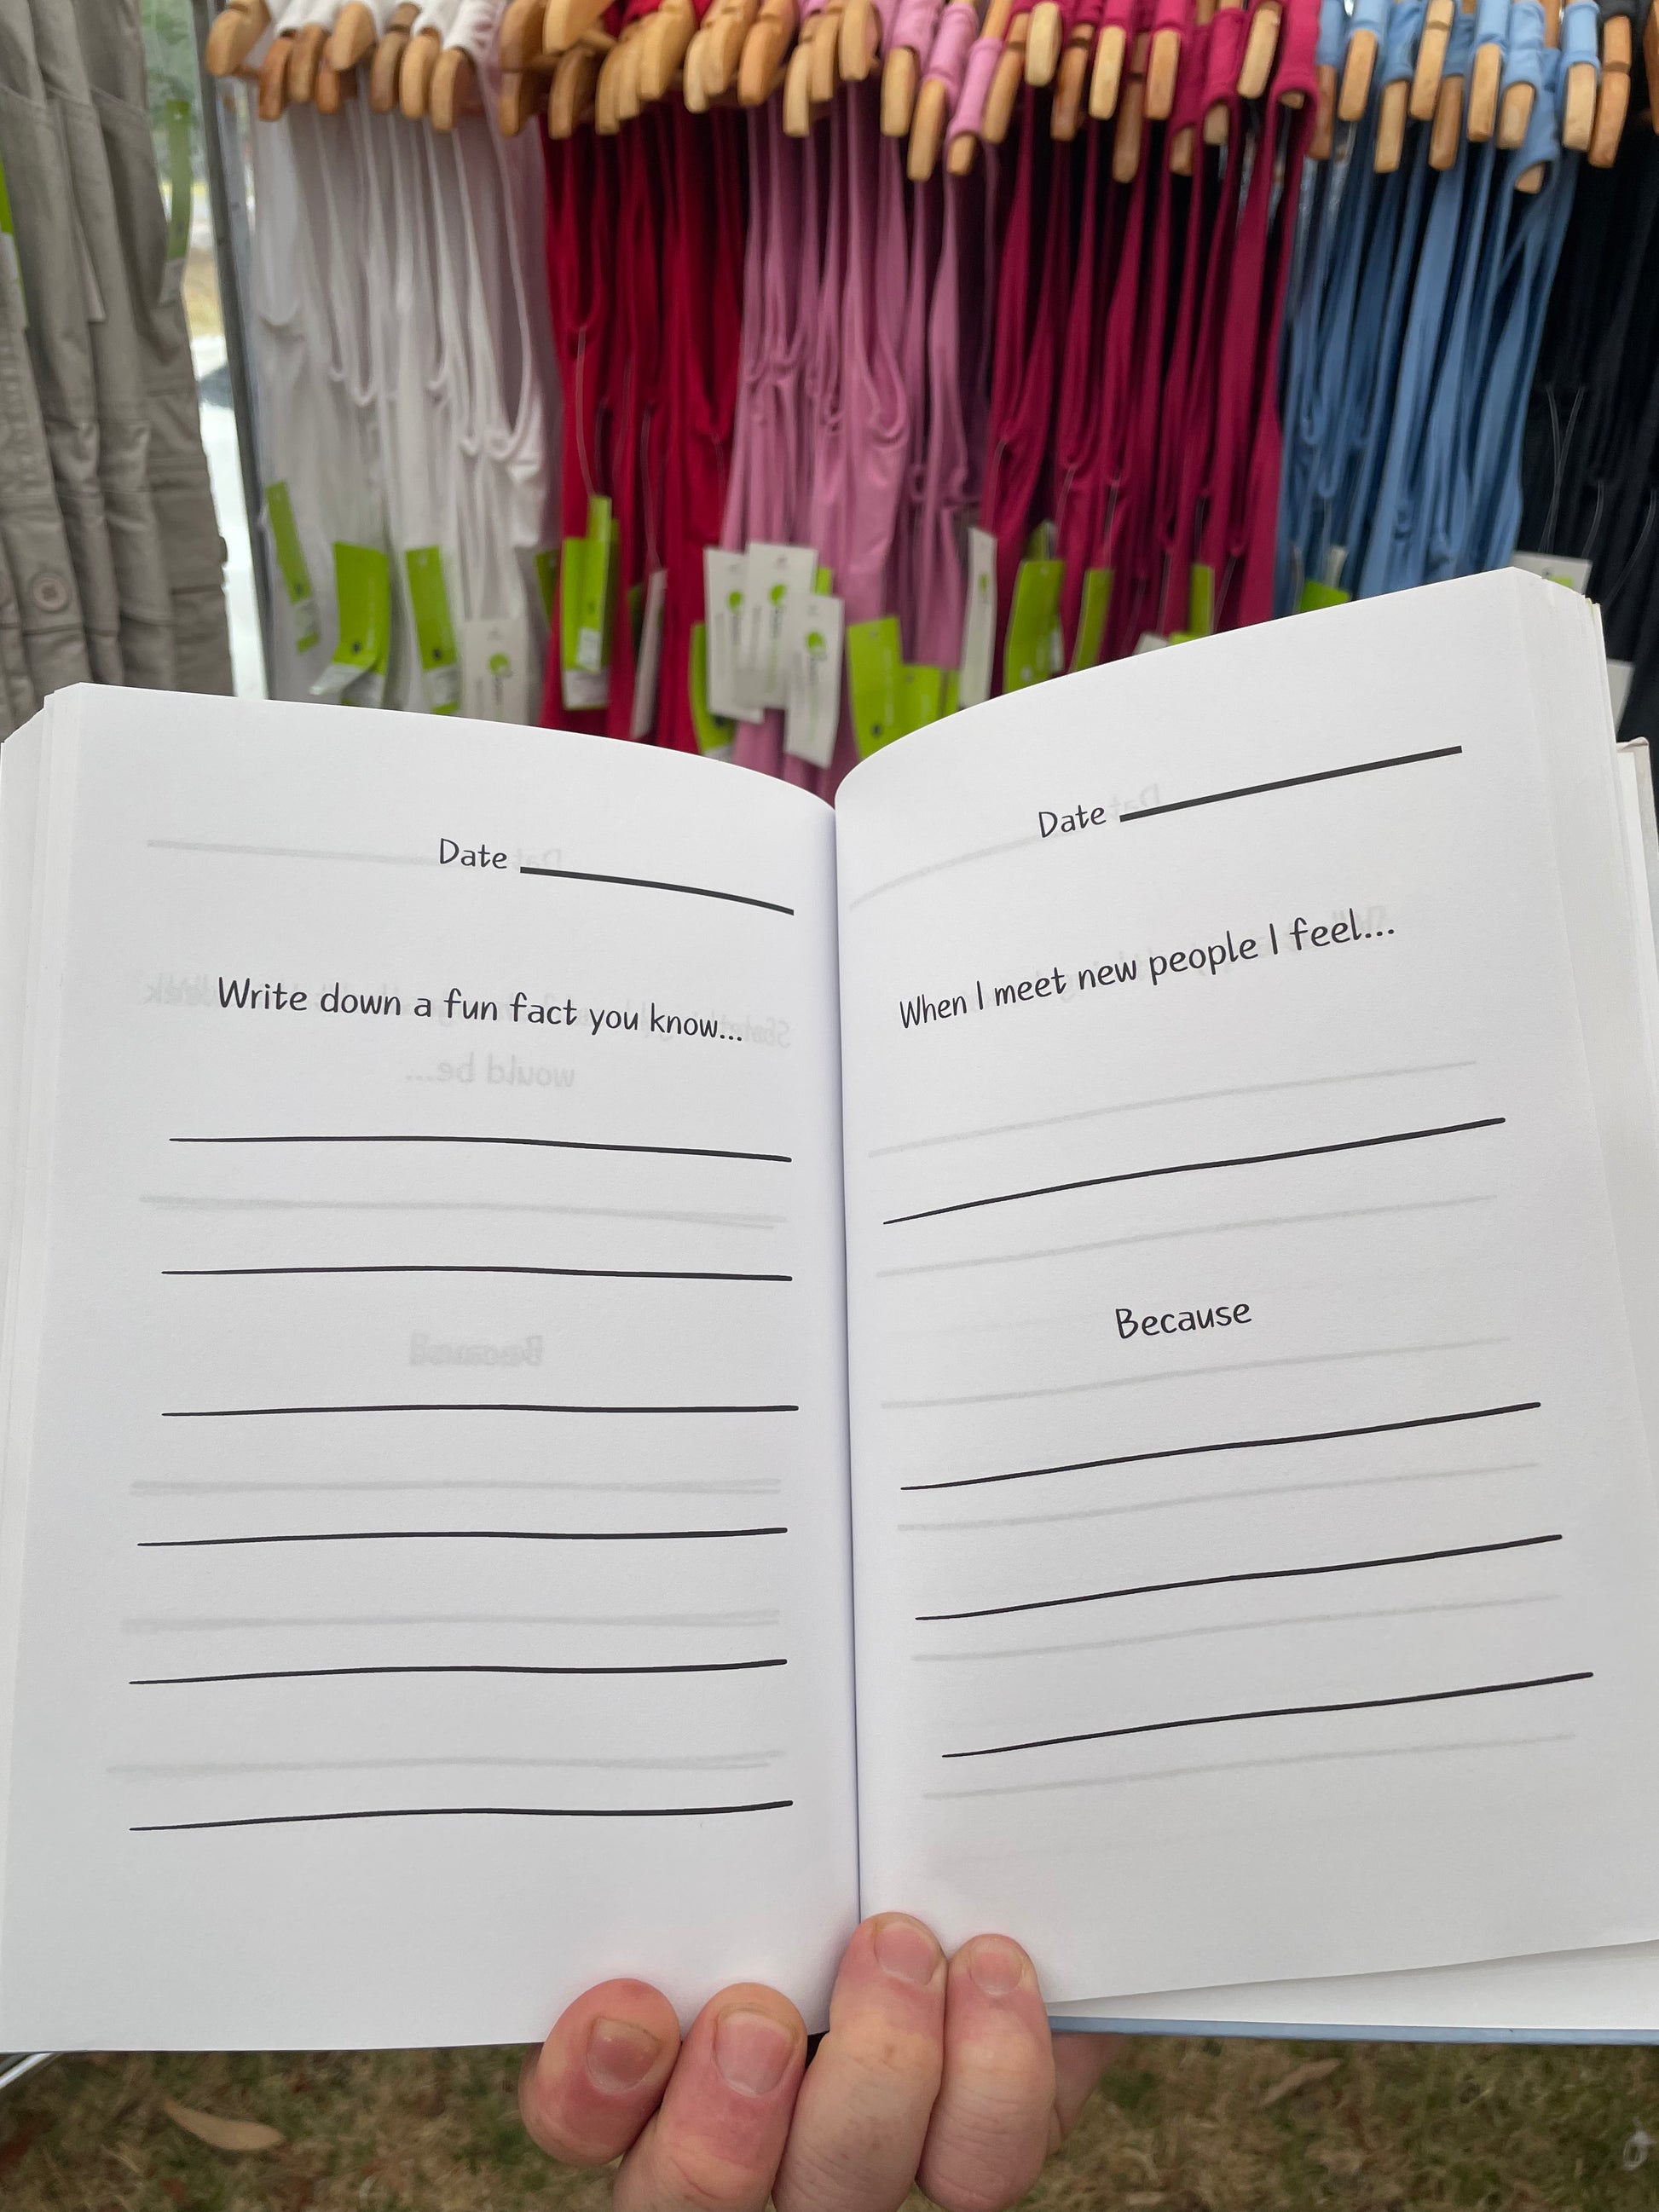 Date
Write down a fun fact you know...
Date
When I meet new people I feel...
Because